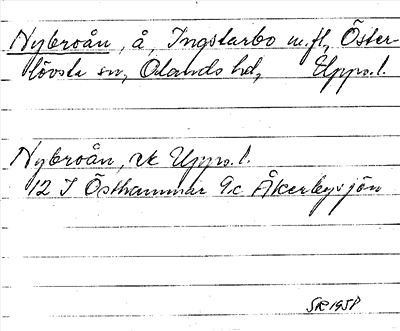 Nybroån, å, Ingstarbo m.fl, Öster-
lövsta sn, Olands hd, Upps.l.
Nybroån, ek Upps.l.
12 I Östhammar 9c Åkerbysjön
SR 1958